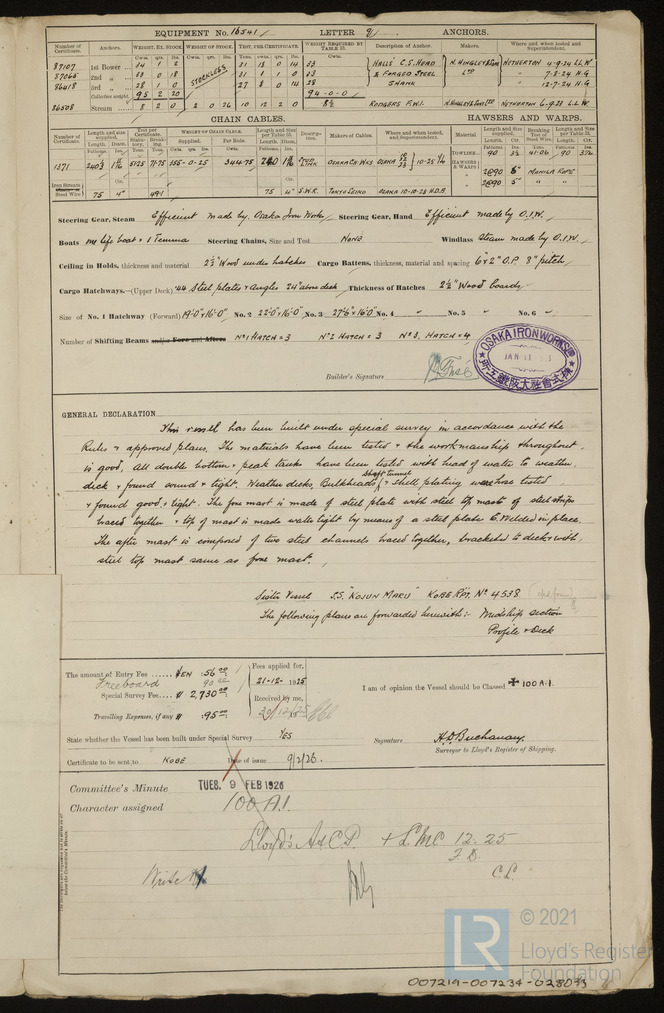 EQUIPMENT No. 16541 LETTER ANCHORS.
Number of Certificate. Anchors. WEIGHT, EX. STOCK. WEIGHT OF STOCK. TEST, PER CERTIFICATE. WEIGHT REQUIRED BY TABLE 22. Description of Anchor. Makers. Where and when tested and Superintendent.
87107 1st Bower 34 1 2 STOCKLESS 31 18 0 14 33 HALLS C.S. HEAD N. HINGLEY & SONS LTD NETHERTON 4-9-24 LL.W
87065 2nd 33 0 18 31 1 1 0 33 & FORGED STEEL 7-8-24 H.G
86418 3rd 28 1 0 27 8 0 14 28 SHANK 12-7-24 H.G
Collective weight 95 2 20 94-0-0
86508 Stream 8 2 0 2 0 26 10 12 2 0 8½ RODGERS P.W.I. N. HINGLEY & SONS LTD NETHERTON 6-9-23 LL.W.
CHAIN CABLES. HAWSERS AND WARPS.
Number of Certificate. Length and size supplied. Test per Certificate. WEIGHT OF CHAIN CABLE. Length and Size per Table 22. Description. Makers of Cables. Where and when tested, and Superintendent. Material Length and size supplied. Breaking Test of Steel Wire. Length and size per Table 22.
1371 51·25 71·75 355-0-25 344·75 240 OSAKA C. WKS OSAKA
TOWLINE 90 90
HAWSERS & WARPS 2@90 6" MANILA ROPE
2@90 5" " "
Iron Stream or Steel Wire 75 4" 49·1 75 4" S.W.R. TOKYO SEIKO OSAKA 10-10-25 H.D.B.
Steering Gear, Steam Efficient made by Osaka Iron Works Steering Gear, Hand Efficient made by O.I.W.
Boats life boat & 1 Temma Steering Chains, Size and Test NONE Windlass Steam made by O.I.W.
Ceiling in Holds, thickness and material 2½" Wood under hatches Cargo Battens, thickness, material and spacing 6"x2" O.P. 9" pitch
Cargo Hatchways.—(Upper Deck) ·44 steel plates & angles 24" above deck Thickness of Hatches 2½" Wood boards
Size of No. 1 Hatchway (Forward) 19'-0"x16'-0" No. 2 22'-0"x16'-0" No. 3 27'-6"x16'-0" No. 4 " No. 5 " No. 6 "
Number of Shifting Beams and/or Fore and Afters No 1 HATCH = 3 No 2 HATCH = 3 No 3, HATCH = 4
OSAKA IRON WORKS LTD
JAN 11
株式會社大阪鐵工所
Builder's Signature
GENERAL DECLARATION
This vessel has been built under special survey in accordance with the
Rules & approved plans. The materials have been tested & the workmanship throughout
is good. All double bottom & peak tanks have been tested with head of water to weather
deck & found sound & tight. Weather decks, Bulkheads, shaft tunnel & shell plating were hose tested
& found good & tight. The fore mast is made of steel plate with steel top mast of steel strips
braced together & top of mast is made water tight by means of a steel plate E. Welded in place.
The after mast is composed of two steel channels braced together, bracketed to deck & with
steel top mast same as fore mast.
Sister Vessel S.S. "KOJUN MARU" KOBE RPT. No 4538
The following plans are forwarded herewith:- Midship section
Profile & Deck
The amount of Entry Fee YEN 56.00
Freeboard 90.00
Special Survey Fee ¥ 2,730.00
Travelling Expenses, if any ¥ 95.00
Fees applied for,
21-12-1925
Received by me,
I am of opinion the Vessel should be Classed ✠ 100 A.1.
State whether the Vessel has been built under Special Survey YES
Signature H.D. Buchanan
Surveyor to Lloyd's Register of Shipping.
Certificate to be sent to KOBE Date of issue 9/2/26
Committee's Minute TUES. 9 FEB 1926
Character assigned 100 A.1.
Lloyd's A & C.P. + L.M.C. 12.25
F.D.
C.L.
Write
LR © 2021
Lloyd's Register
Foundation
007219-007234-0280